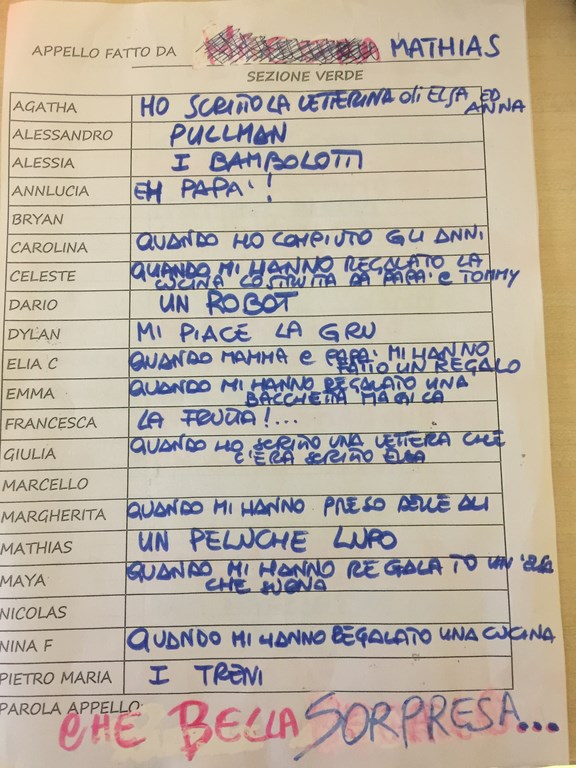 APPELLO FATTO DA MATHIAS
SEZIONE VERDE
AGATHA HO SCRITTO LA LETTERINA di ELSA ED ANNA
ALESSANDRO PULLMAN
ALESSIA I BAMBOLOTTI
ANNLUCIA EH PAPA'!
BRYAN
CAROLINA QUANDO HO COMPIUTO GLI ANNI
CELESTE QUANDO MI HANNO REGALATO LA
CUCINA COSTRUITA DA PAPA' e TOMMY
DARIO UN ROBOT
DYLAN MI PIACE LA GRU
ELIA C QUANDO MAMMA e PAPA' MI HANNO
FATTO UN REGALO
EMMA QUANDO MI HANNO REGALATO UNA
BACCHETTA MAGICA
FRANCESCA LA FRUTTA!...
GIULIA QUANDO HO SCRITTO UNA LETTERA CHE
C'ERA SCRITTO ELSA
MARCELLO
MARGHERITA QUANDO MI HANNO PRESO DELLE ALI
MATHIAS UN PELUCHE LUPO
MAYA QUANDO MI HANNO REGALATO UN'ELSA
CHE SUONA
NICOLAS
NINA F QUANDO MI HANNO REGALATO UNA CUCINA
PIETRO MARIA I TRENI
PAROLA APPELLO:
CHE BELLA SORPRESA...